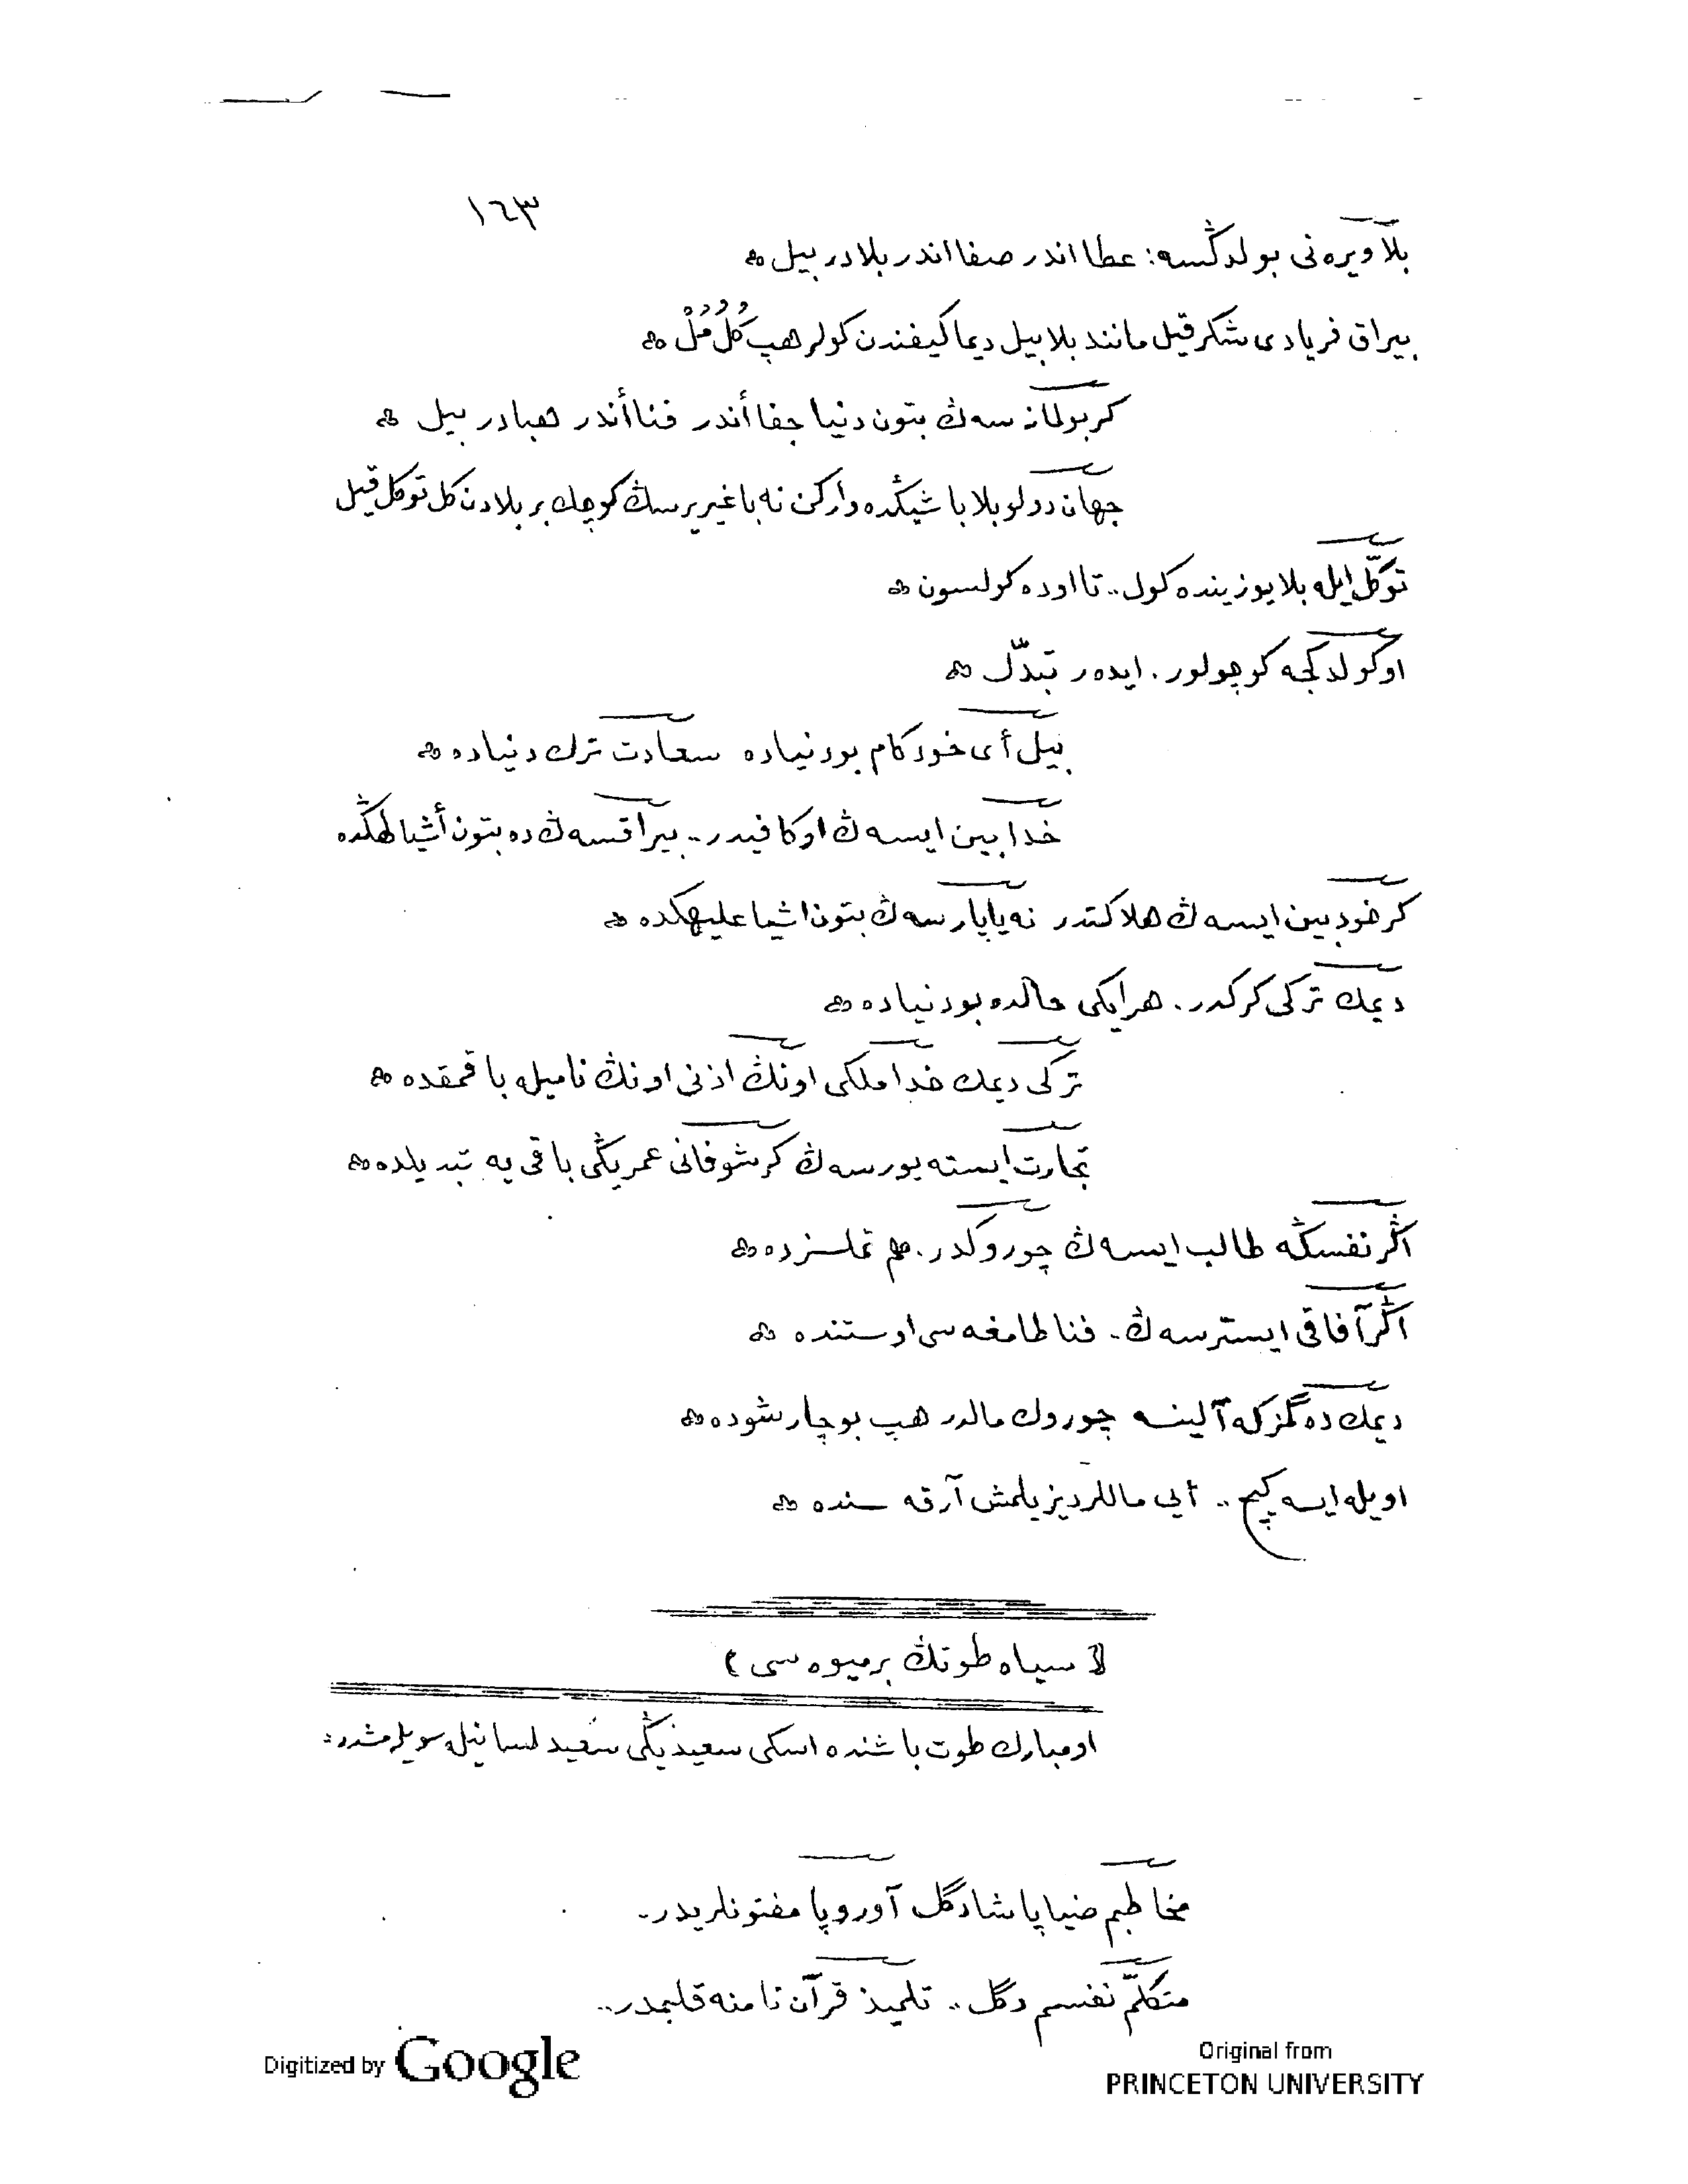 ١٦٣
بلا ويره نى بولدڭسه: عطا اندر صفا اندر بلادر بيل ۞
بيراق فريادى شكر قيل مانند بلابيل ديما كيفندن كولر هپ كُلُ مُلْ ۞
كر بولمازسه ڭ بتون دنيا جفا أندر فنا أندر هبادر بيل ۞
جهان دولو بلا باشيڭده واركن نه باغيريرسڭ كوچك بر بلادن كل توكل قيل
توكّل ايله بلا يوزينده كول.. تا اوده كولسون ۞
او كولدكجه كوچولور. ايدەر تبدّل ۞
بيل أى خودكام بو دنياده سعادت ترك دنياده ۞
خدابين ايسه ڭ او كافيدر.. بيراقسه ڭ ده بتون أشيا لهڭده
كر خودبين ايسه ڭ هلاكتدر نه ياپارسه ڭ بتون اشيا عليهڭده ۞
ديمك تركى كركدر. هر ايكى حالده بو دنياده ۞
تركى ديمك خدا ملكى اونڭ اذنى اونڭ ناميله باقمقده ۞
تجارت ايسته يورسه ڭ كر شو فانى عمريڭى باقى يه تبديلده ۞
اڭر نفسڭه طالب ايسه ڭ چوروكدر. هم تملسزده ۞
اڭر آفاقى ايسترسه ڭ. فنا طامغه سى اوستنده ۞
ديمك دەگمز كه آلينسه چوروك مالدر هپ بو چارشوده ۞
اويله ايسه كچ.. أيى ماللر ديزيلمش آرقه سنده ۞
( سياه طوتڭ بر ميوه سى )
او مبارك طوت باشنده اسكى سعيد يڭى سعيد لسانيله سويله مشدر:
مخاطبم ضيا پاشا دگل آوروپا مفتونلريدر.
متكلّم نفسم دگل.. تلميذ قرآن نامنه قلبمدر..
Digitized by Google
Original from
PRINCETON UNIVERSITY